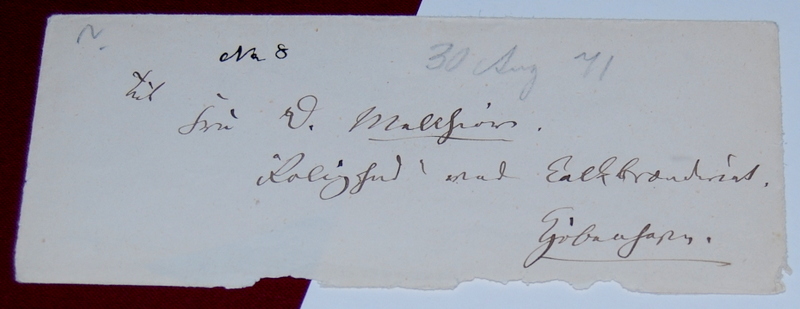 No 8
30 Aug 71
Til
Fru D. Melchior.
Rolighed ved Kalkbrænderiet.
Kjøbenhavn.